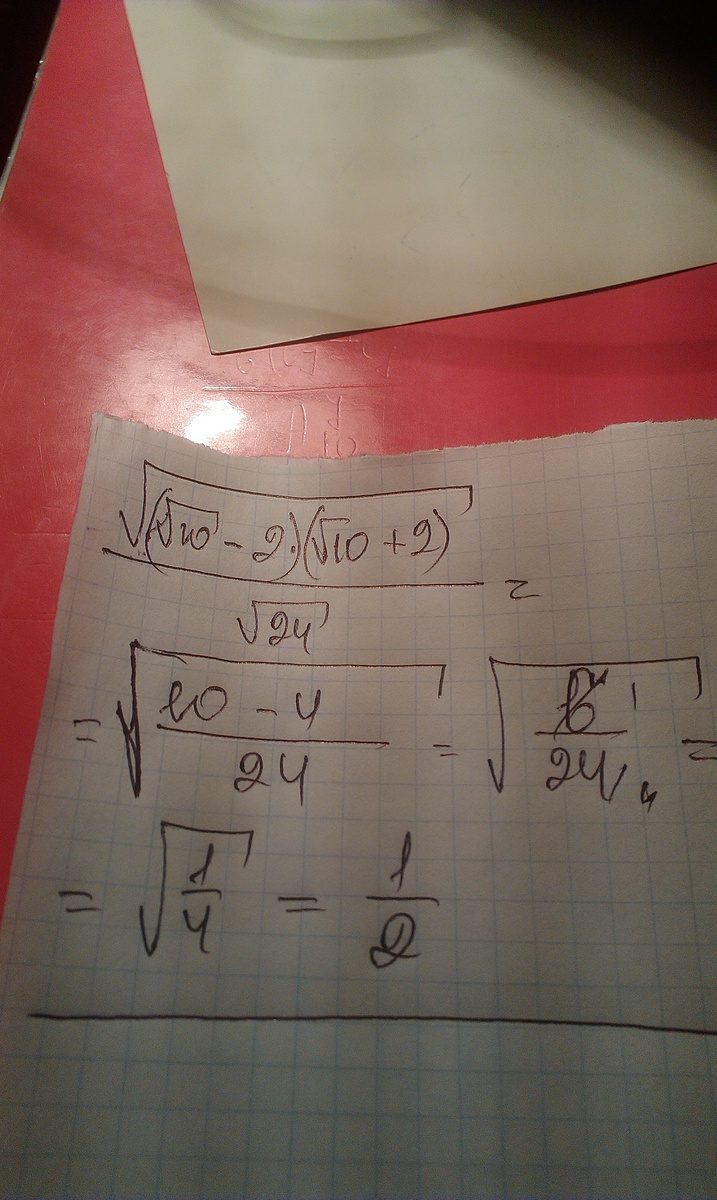 √((√10 - 2)(√10 + 2))
√24 =
= √(10 - 4 / 24) = √(6 1 / 24 4) =
= √(1/4) = 1/2